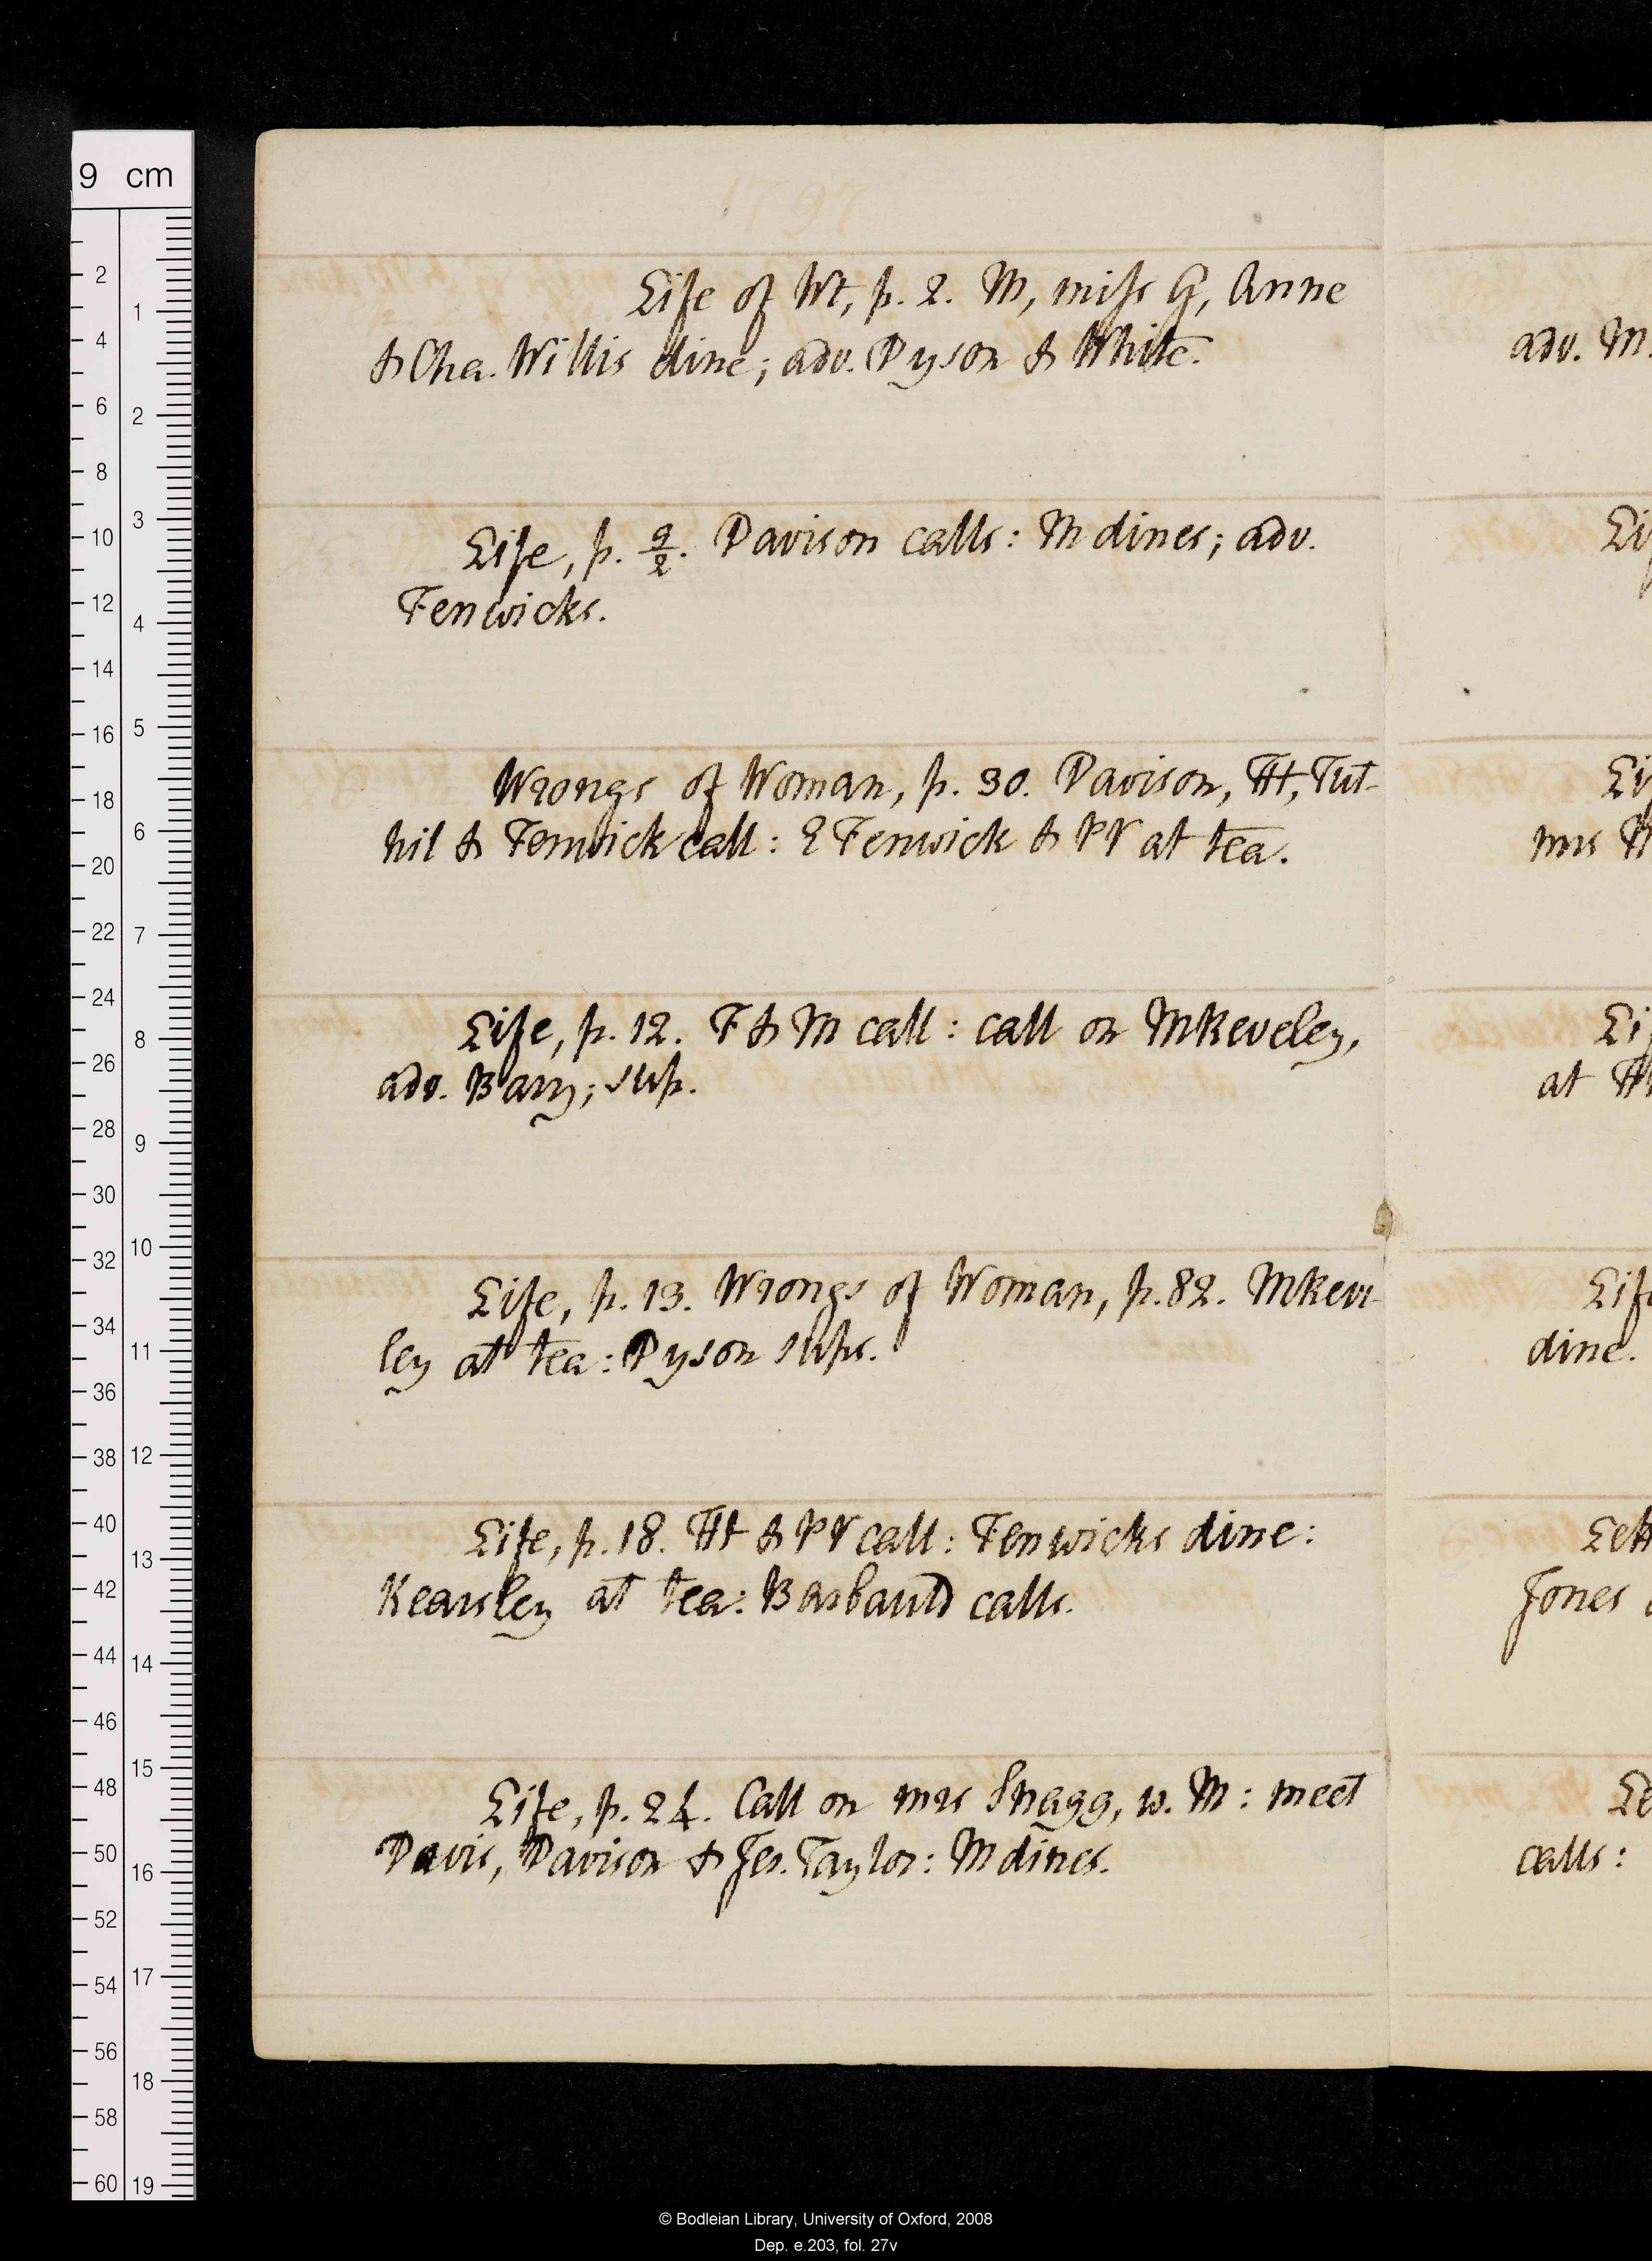 Life of Wt, p. 2. M, miss G, Anne
& Cha. Willis dine; adv. Dyson & White.
Life, p. 9/2. Davison calls: M dines; adv.
Fenwicks.
Wrongs of Woman, p. 30. Davison, Ht, Tut-
hil & Fenwick call: E Fenwick & PV at tea.
Life, p. 12. F & M call: call on M Reveley,
adv. Barry; sup.
Life, p. 13. Wrongs of Woman, p. 82. M Reve-
ley at tea: Dyson sups.
Life, p. 18. Ht & PV call: Fenwicks dine:
Kearsley at tea: Barbauld calls.
Life, p. 24. Call on mrs Shagg, w. M: meet
Davis, Davison & Jes. Taylor: M dines.
adv. M.
mrs
at
dine.
Jones
calls:
9 cm
2
4
6
8
10
12
14
16
18
20
22
24
26
28
30
32
34
36
38
40
42
44
46
48
50
52
54
56
58
60
1
2
3
4
5
6
7
8
9
10
11
12
13
14
15
16
17
18
19
© Bodleian Library, University of Oxford, 2008
Dep. e.203, fol. 27v